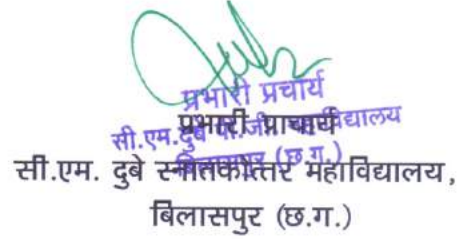 प्रभारी प्रचार्य
सी.एम.दुबे पी.जी. महाविद्यालय
बिलासपुर (छ.ग.)
प्रभारी प्राचार्य
सी.एम. दुबे स्नातकोत्तर महाविद्यालय,
बिलासपुर (छ.ग.)